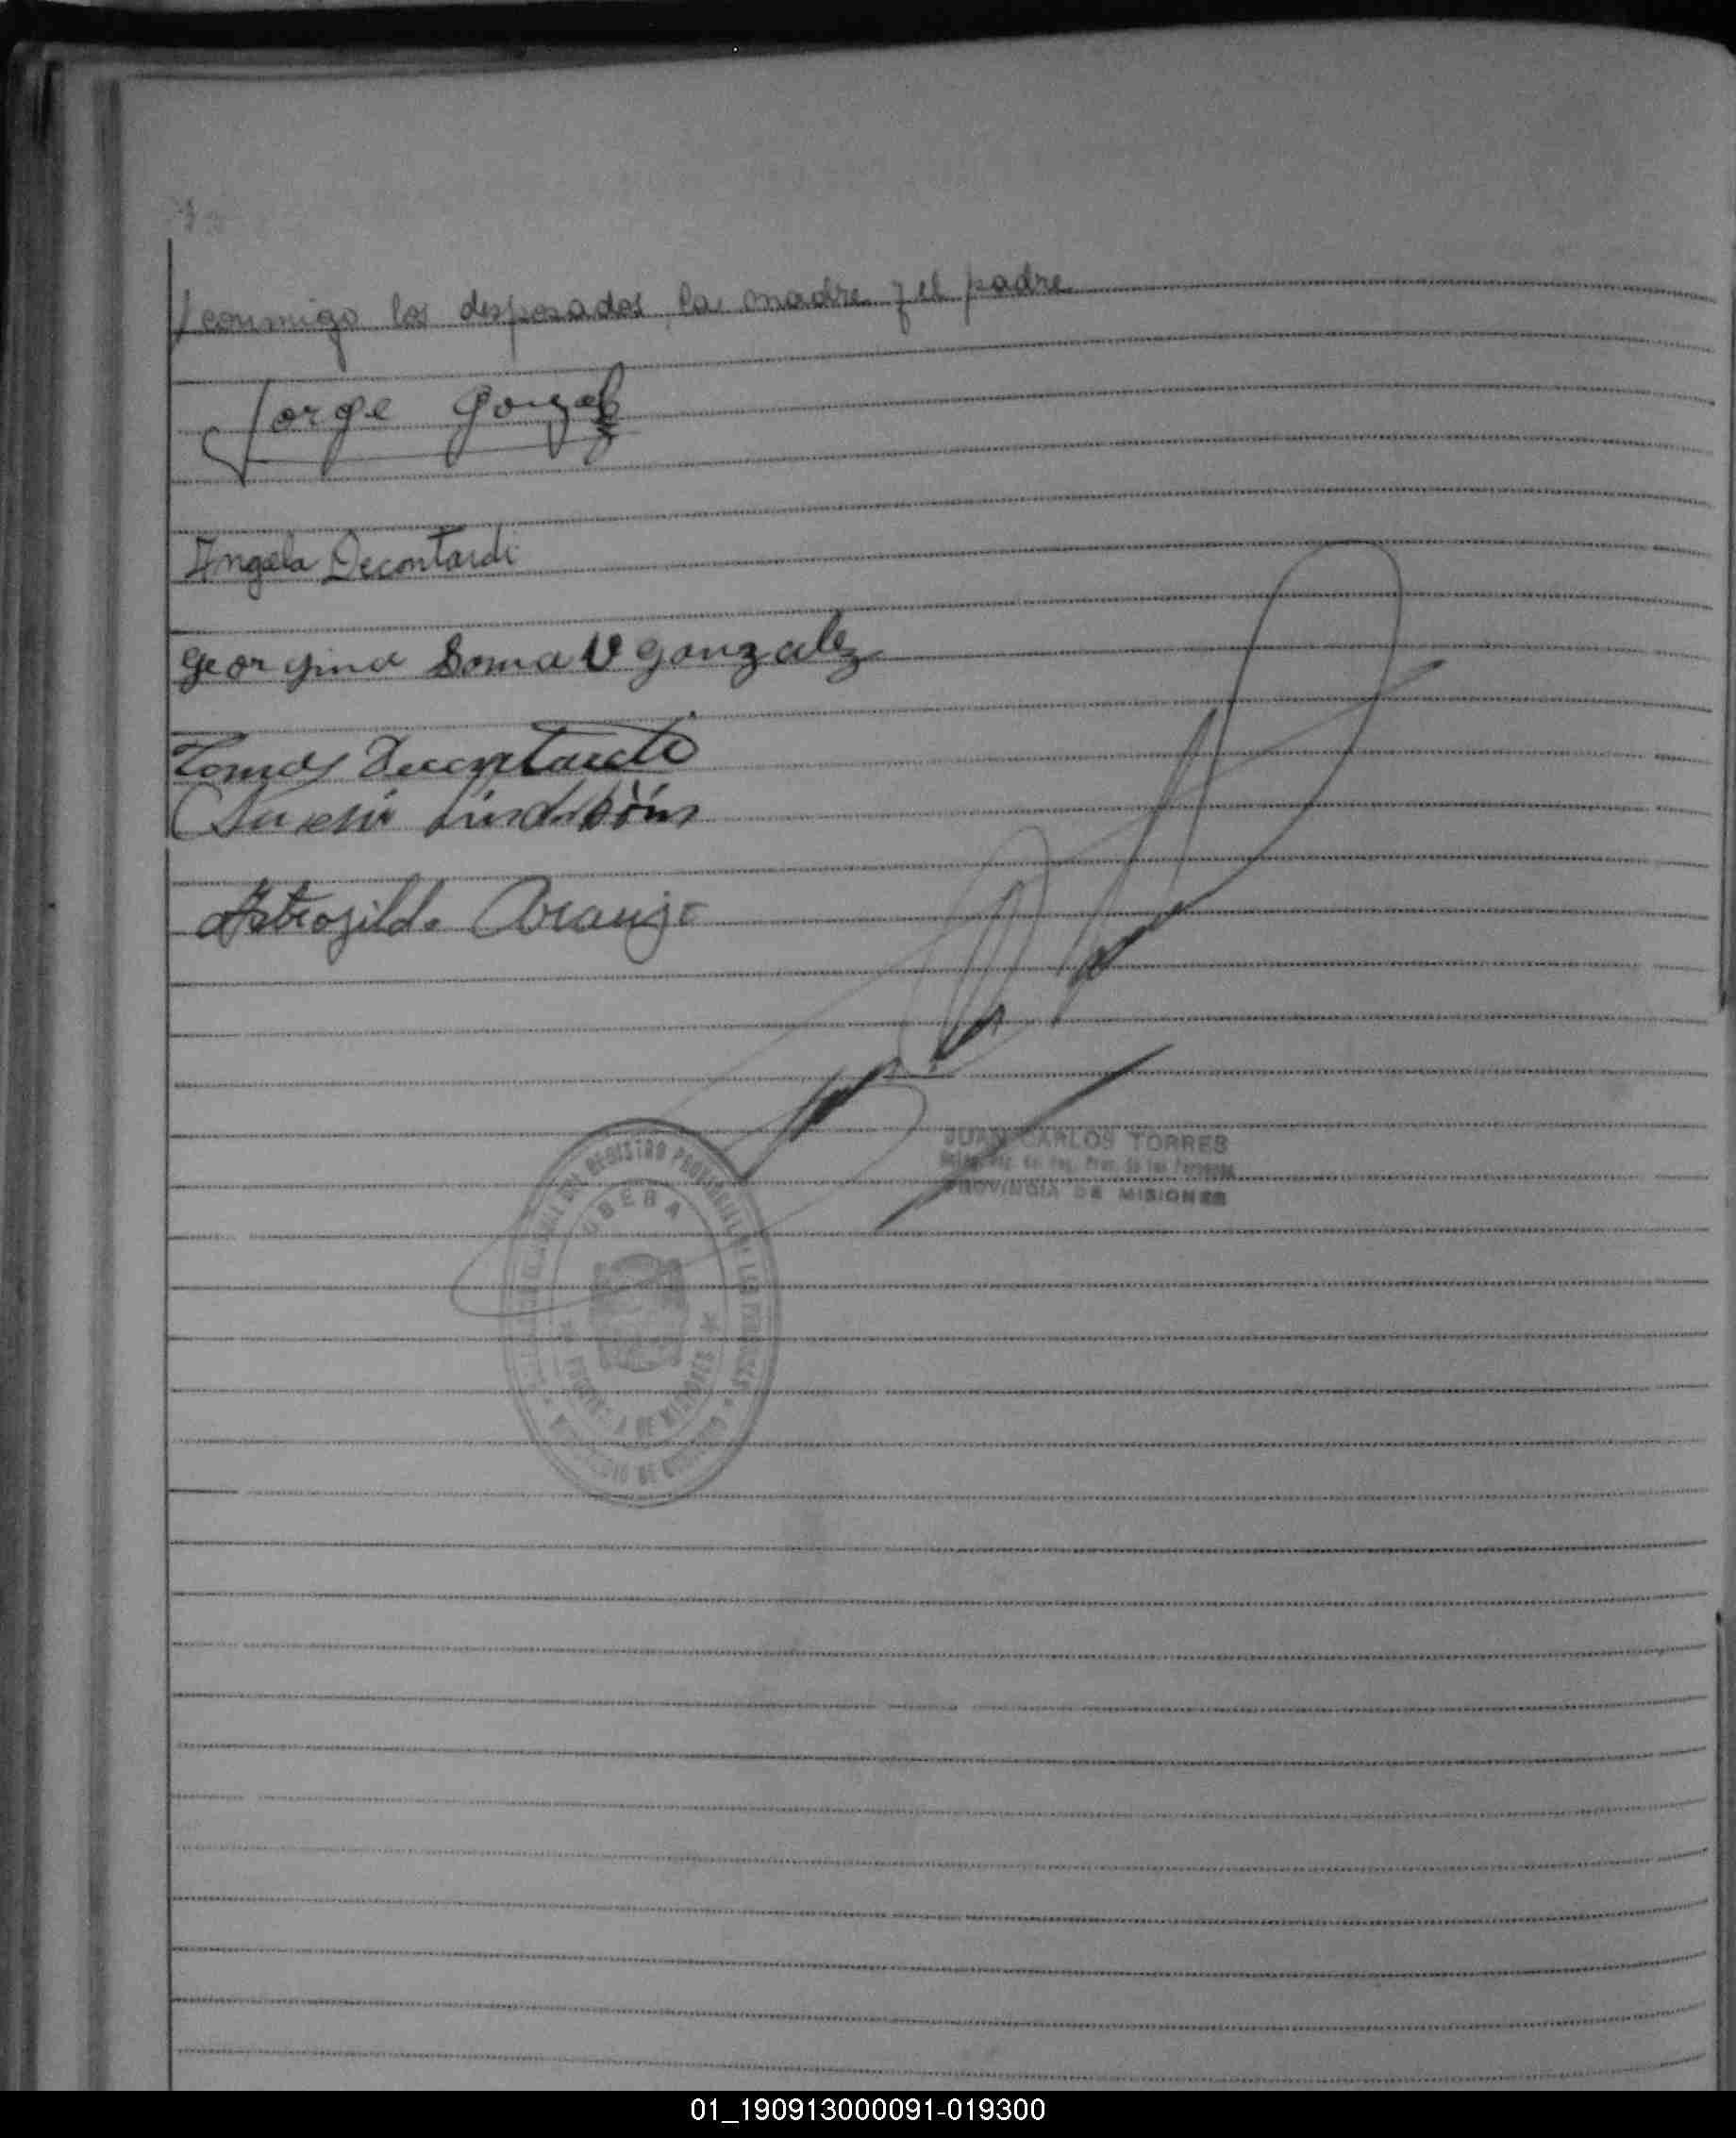 / conmigo los desposados, la madre y el padre
Jorge Gonzalez
Angela Decontardi
georgina Soma V gonzalez
Tomas Decontardi
Astrogildo Araujo
JUAN CARLOS TORRES
PROVINCIA DE MISIONES
REGISTRO PROVINCIAL DE LAS PERSONAS
OBERA
PROVINCIA DE MISIONES
01_190913000091-019300